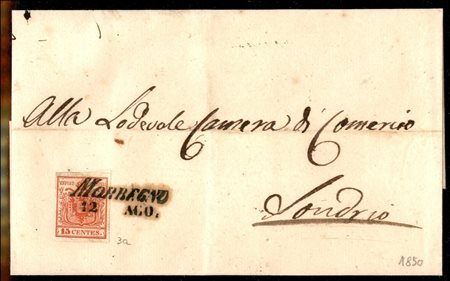 Alla Lodevole Camera di Comercio
Sondrio
MORBEGNO
12 AGO.
15 CENTES.
3a
1850